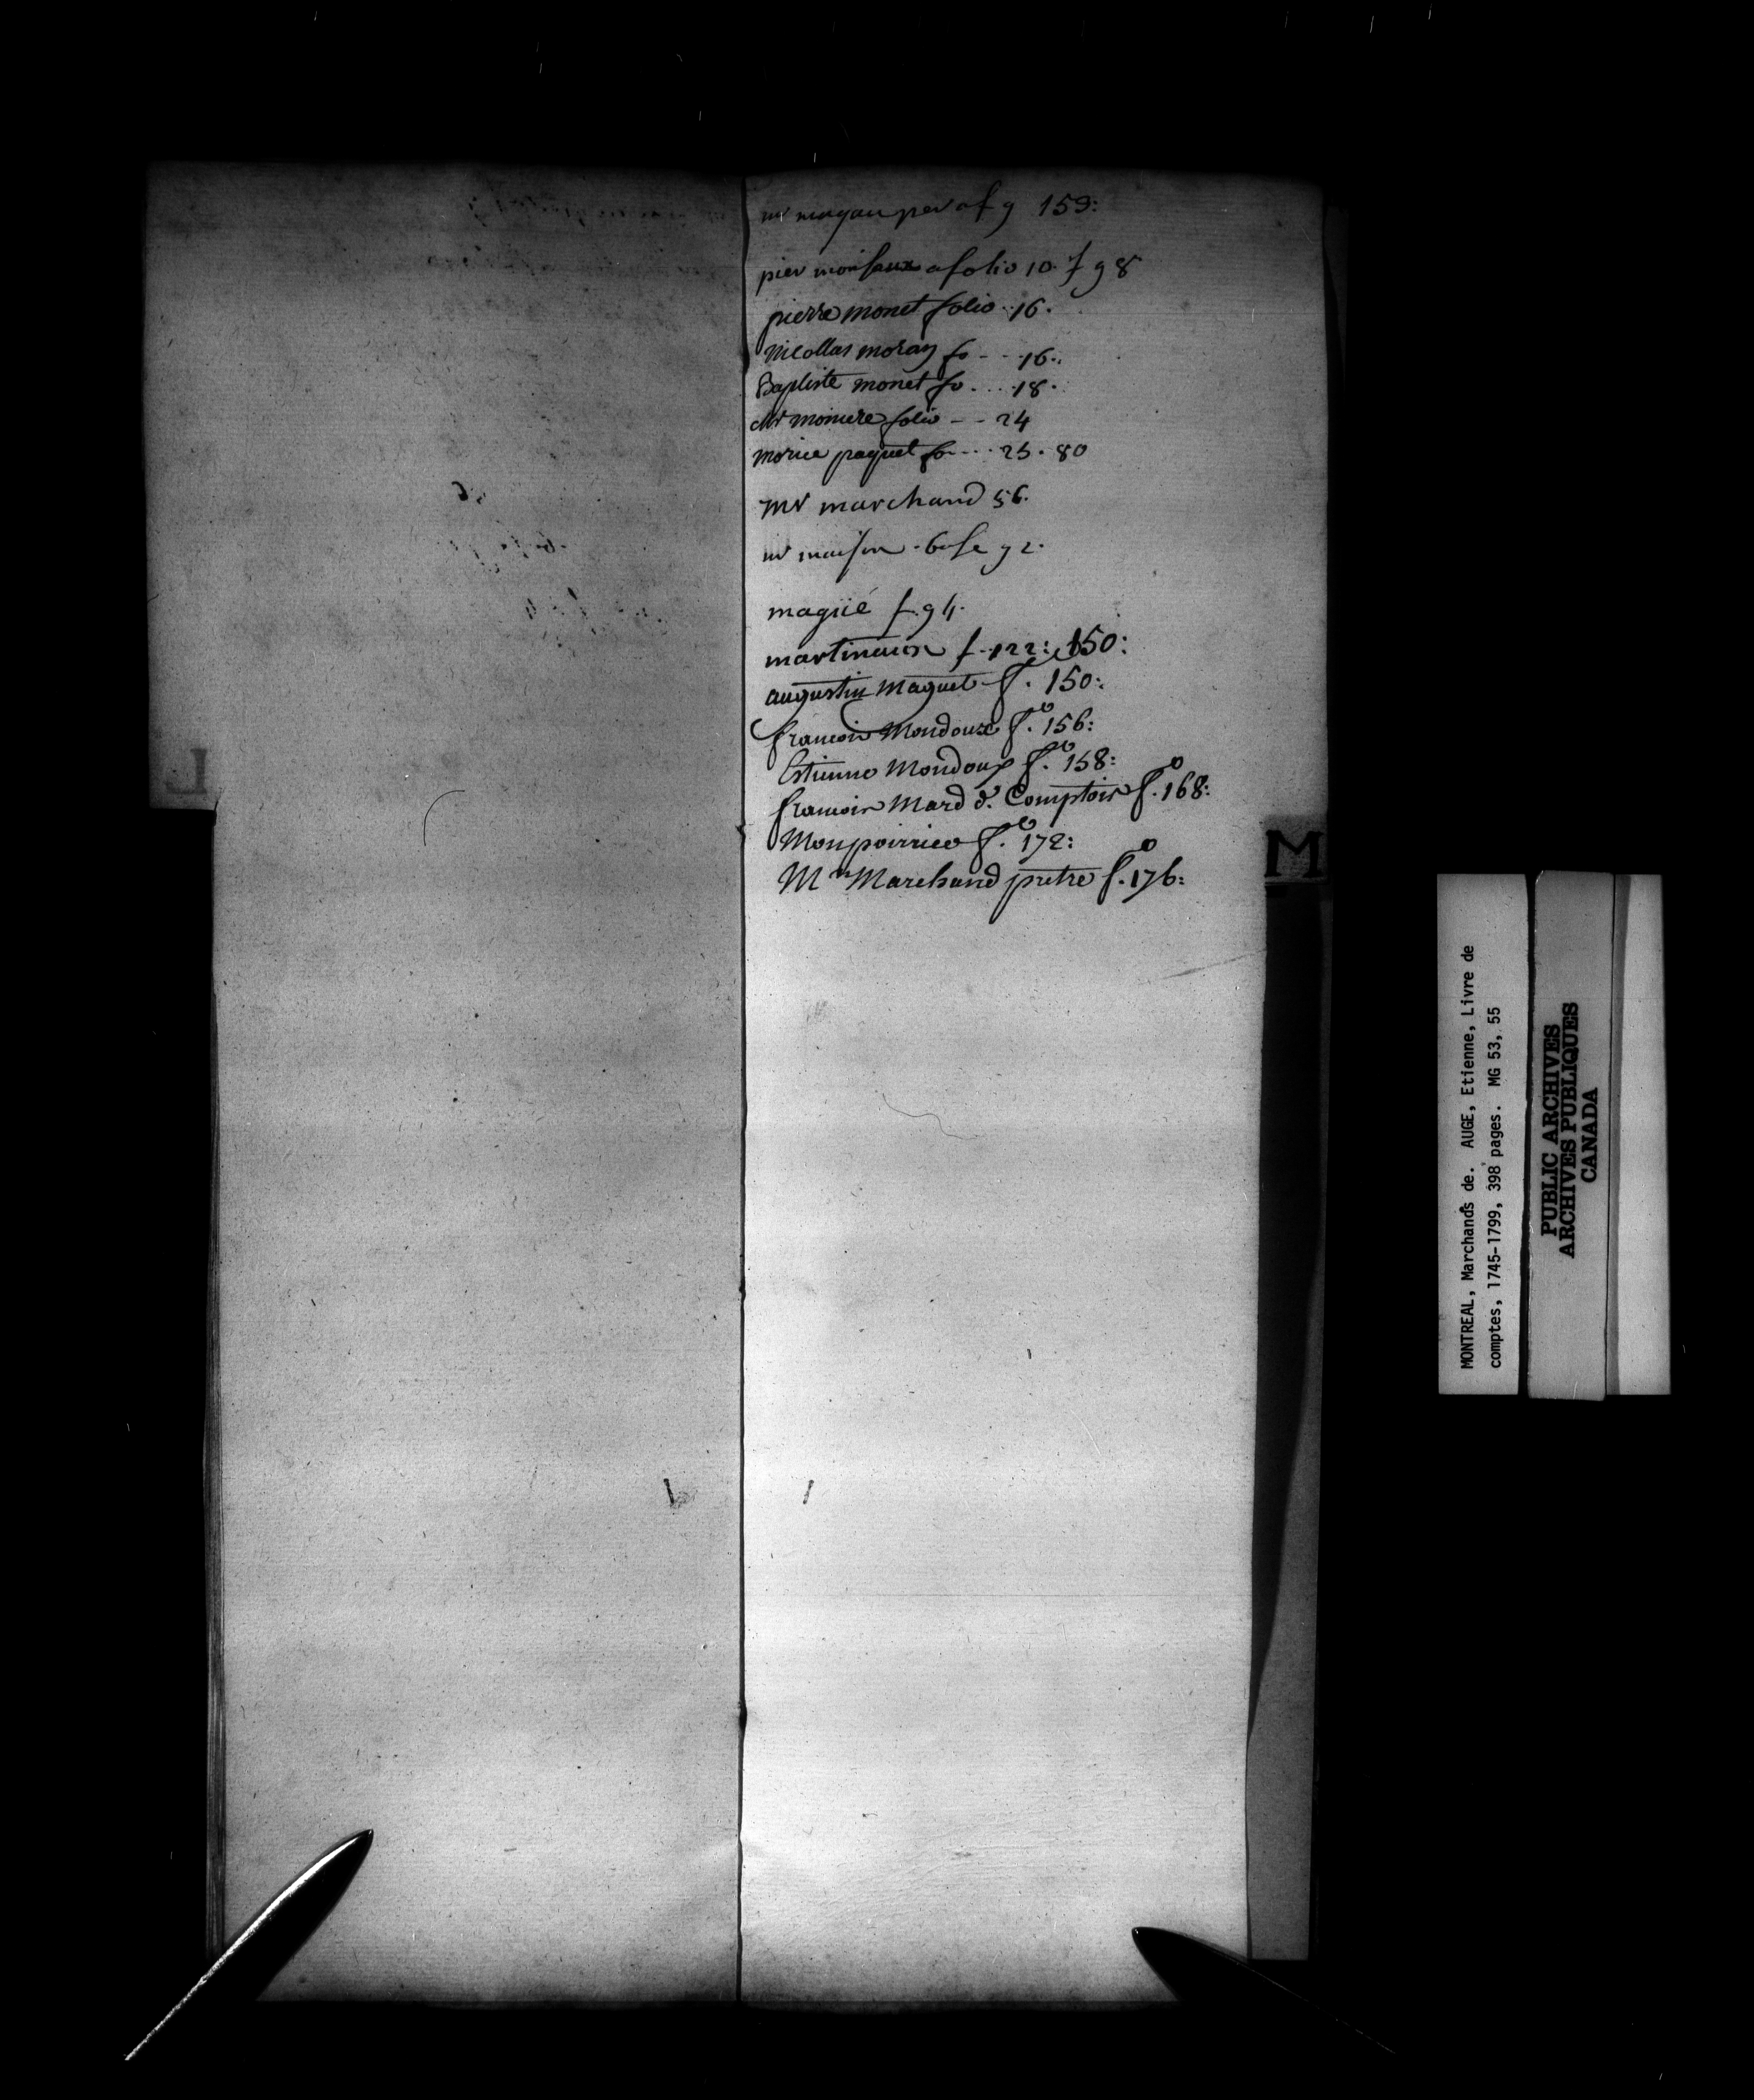 mr magau per a f 9 159:
pier monsaux a folio 10 f 98
pierre monet folio 16.
Nicollas moran fo - - 16.
Baptiste monet fo .... 18.
Mr moniere folio - - 24
morice paquet fo --- 25. 80
Mr marchand 56.
mr maison-base 92.
magüé f. 94.
martineaux f. 122: 150:
augustin Maguet f. 150:
francois Mondoux f.o 156:
Estienne Mondoux f.o 158:
francois Mard d. Comptoir f.o 168:
Monpoirrier f.o 172:
Mr Marchand pretre f.o 176:
L
M
MONTREAL, Marchands de. AUGE, Etienne, Livre de
comptes, 1745-1799, 398 pages. MG 53, 55
PUBLIC ARCHIVES
ARCHIVES PUBLIQUES
CANADA